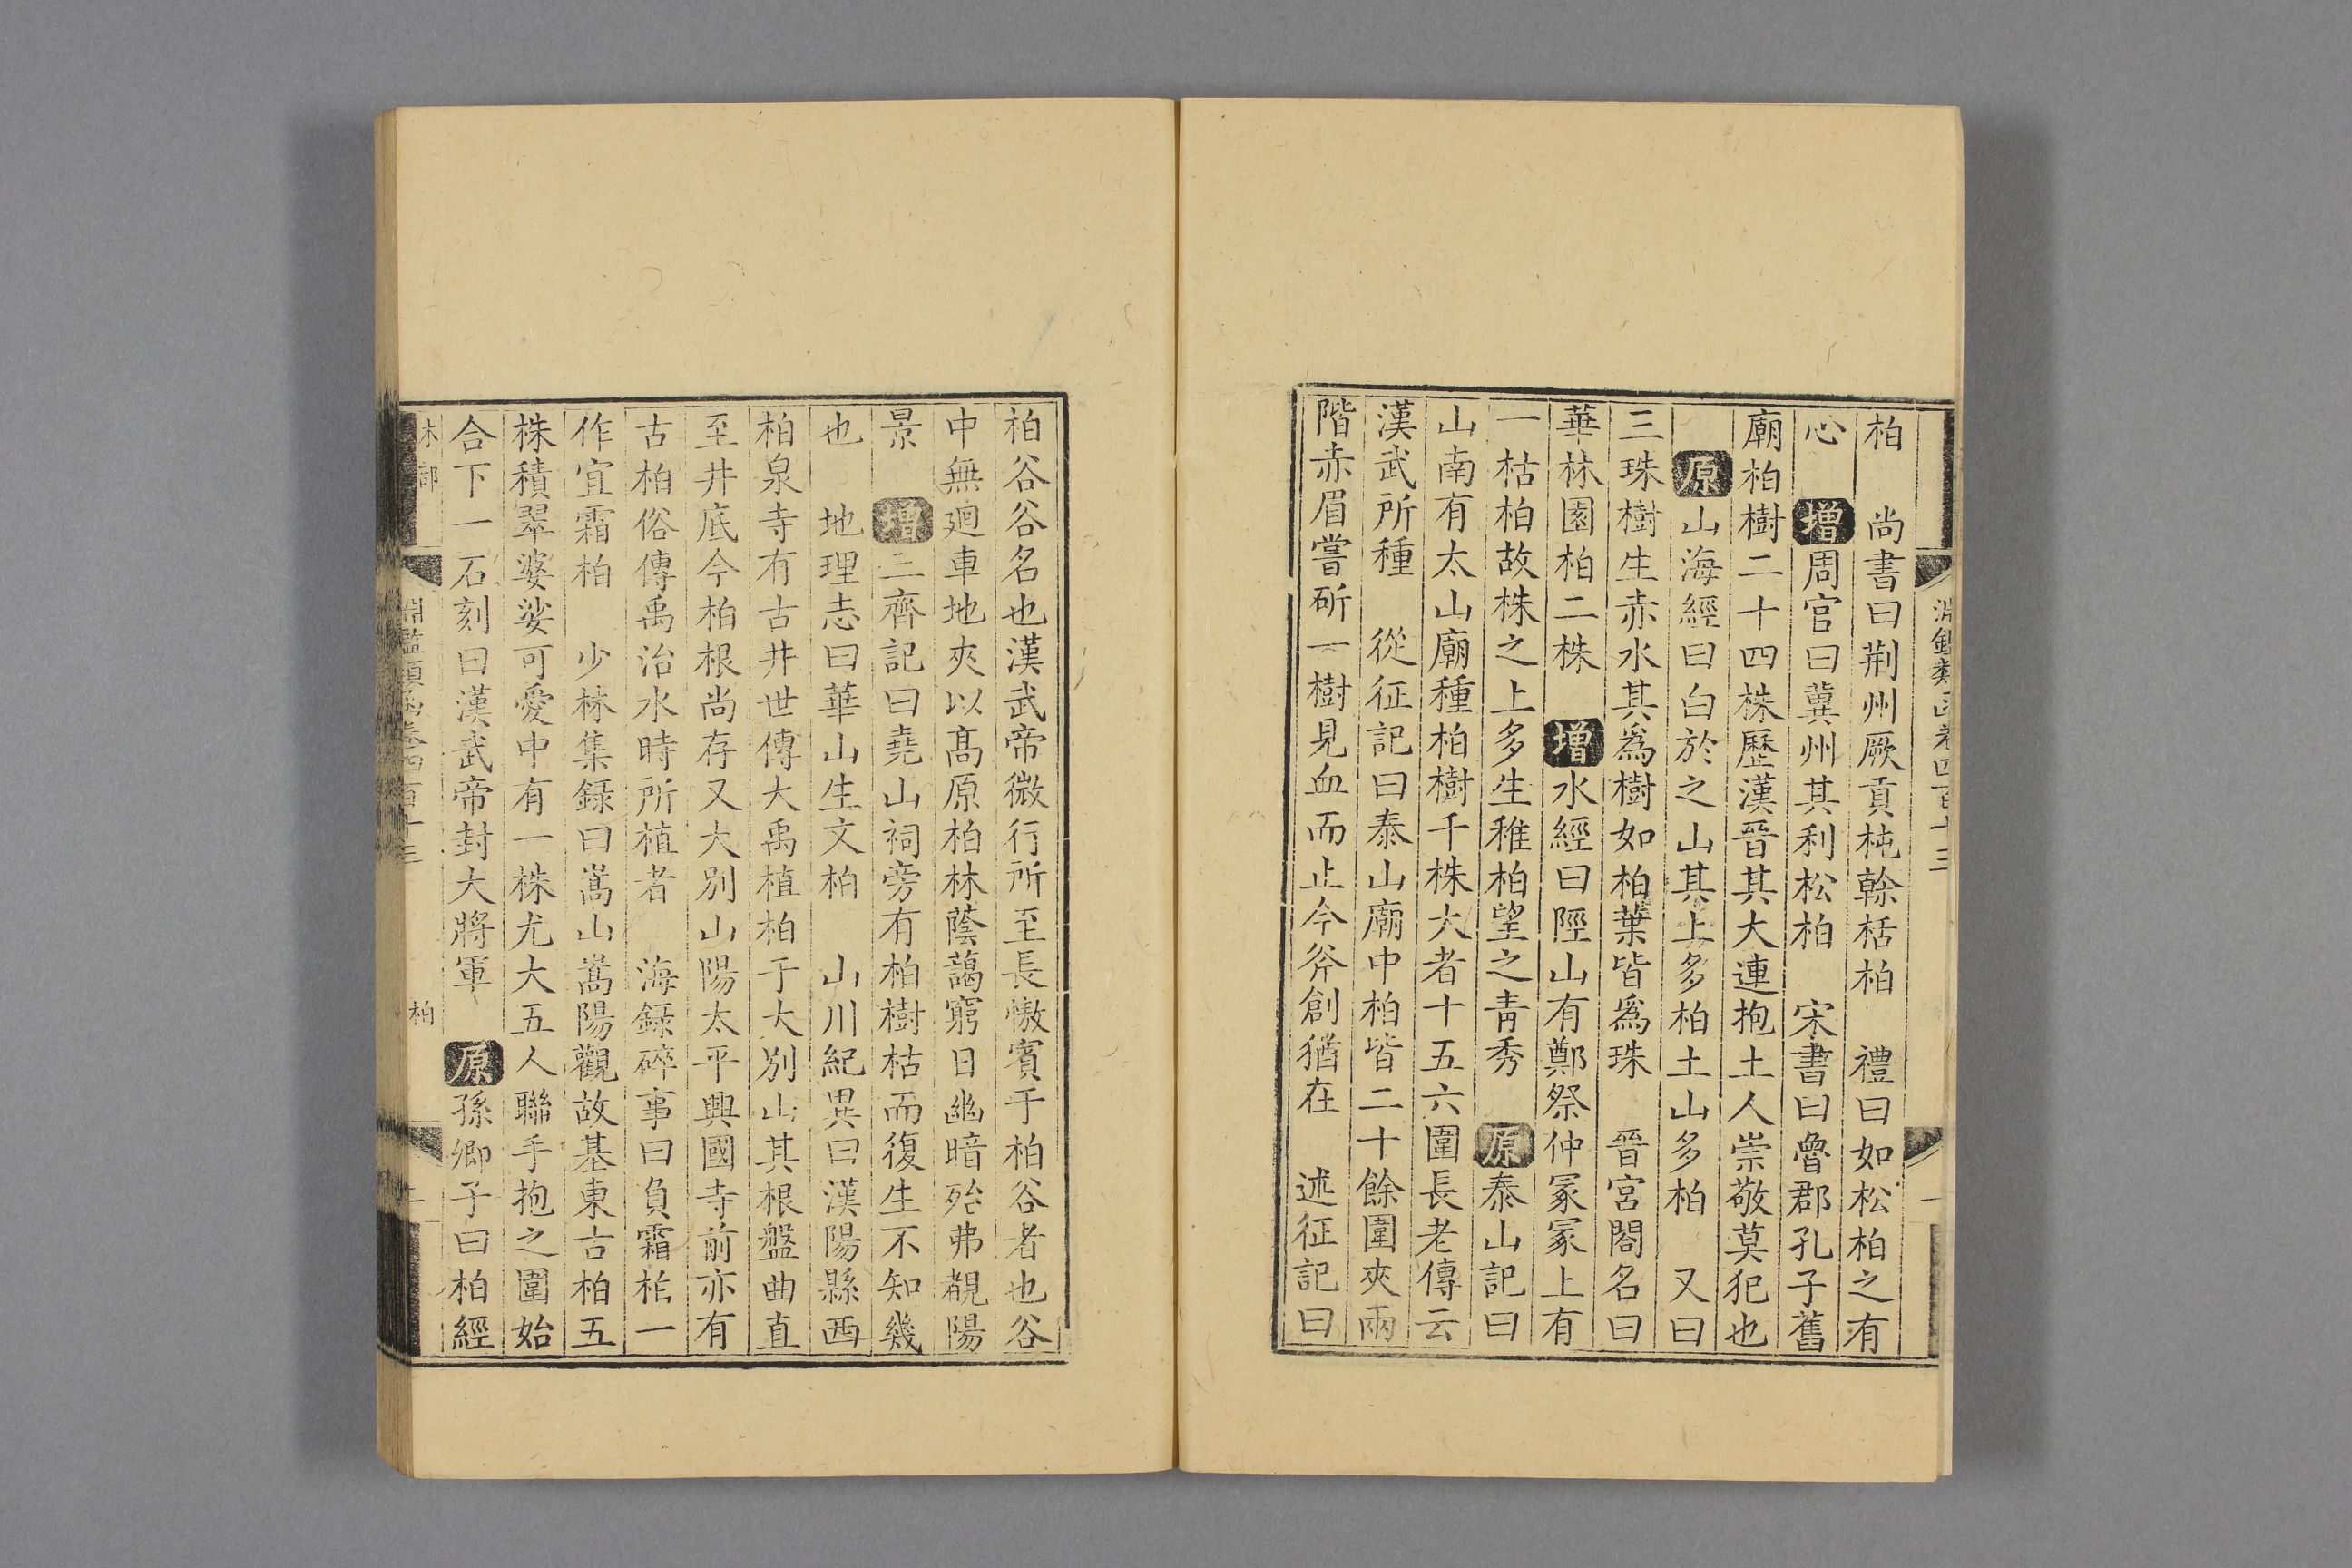 柏　尚書曰荆州厥貢杶榦栝柏　禮曰如松柏之有
心　增周官曰冀州其利松柏　宋書曰魯郡孔子舊
廟柏樹二十四株歷漢晉其大連抱土人崇敬莫犯也
原山海經曰白於之山其上多柏土山多柏　又曰
三珠樹生赤水其爲樹如柏葉皆爲珠　晉宮閣名曰
華林園柏二株　增水經曰陘山有鄭祭仲冢冢上有
一枯柏故株之上多生稚柏望之靑秀　原泰山記曰
山南有太山廟種柏樹千株大者十五六圍長老傳云
漢武所種　從征記曰泰山廟中柏皆二十餘圍夾兩
階赤眉嘗斫一樹見血而止今斧創猶在　述征記曰
柏谷谷名也漢武帝微行所至長慠賓于柏谷者也谷
中無廻車地夾以髙原柏林蔭藹窮日幽暗殆弗覩陽
景　增三齊記曰堯山祠旁有柏樹枯而復生不知幾
也　地理志曰華山生文柏　山川紀異曰漢陽縣西
柏泉寺有古井世傳大禹植柏于大别山其根盤曲直
至井底今柏根尚存又大别山陽太平興國寺前亦有
古柏俗傳禹治水時所植者　海錄碎事曰負霜栢一
作宜霜柏　少林集錄曰嵩山嵩陽觀故基東古柏五
株積翠婆娑可愛中有一株尤大五人聯手抱之圍始
合下一石刻曰漢武帝封大將軍　原孫卿子曰柏經
木部　淵鑑類函卷四百十三　柏　二